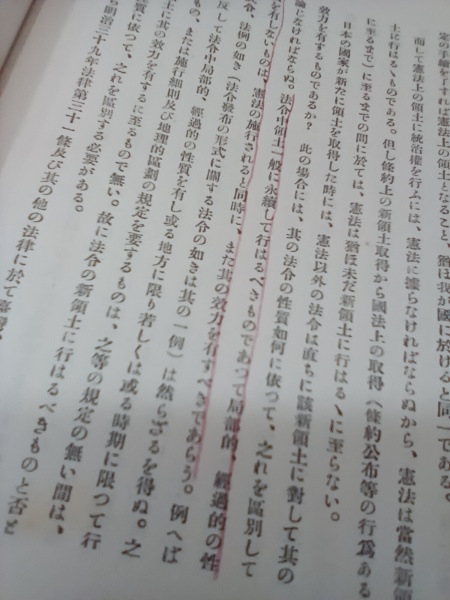 定の手續を了すれば憲法上の領土となること、猶ほ我が國に於けると同一である。
而して憲法上の領土に統治權を行ふには、憲法に據らなければならぬから、憲法は當然新領
土に行はるゝものである。但し條約上の新領土取得から國法上の取得(條約公布等の行爲ある
に至るまで)に至るまでの間に於ては、憲法は猶ほ未だ新領土に行はるゝに至らない。
日本の國家が新たに領土を取得した時には、憲法以外の法令は直ちに該新領土に對して其の
效力を有するものであるか? 此の場合には、其の法令の性質如何に依つて、之れを區別して
論じなければならぬ。法令中領土一般に永續して行はるべきものであつて局部的、經過的の性
を有しないものは、憲法の施行されると同時に、また其の效力を有すべきであらう。例へば
令、法例の如き(法令發布の形式に關する法令の如きは其の一例)は然らざるを得ぬ。之
反して法令中局部的、經過的の性質を有し或る地方に限り若しくは或る時期に限つて行
もの、または施行細則及び地理的區劃の規定を要するものは、之等の規定の無い間は、
土に其の效力を有するに至るもので無い。故に法令の新領土に行はるべきものと否と
性質に依つて、之れを區別する必要がある。
ら明治三十九年法律第三十一條及び其の他の法律に於て